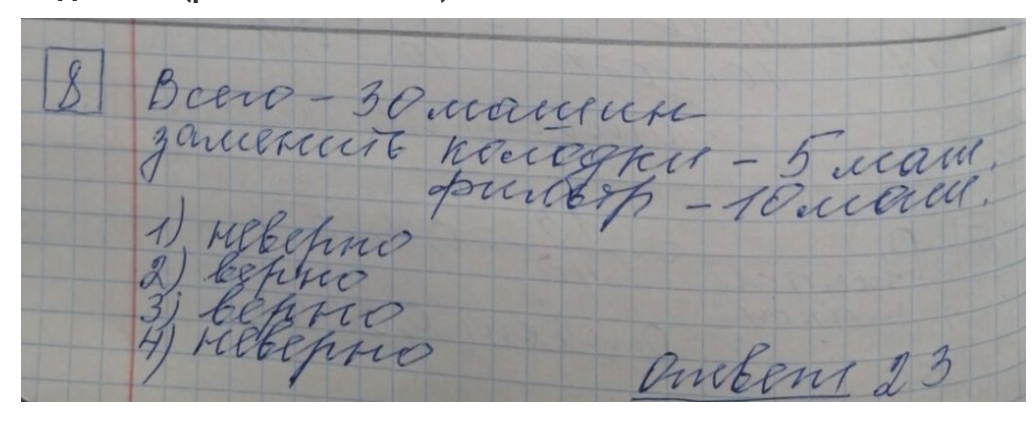 8
Всего - 30 машин
заменить колодки - 5 маш.
фильтр - 10 маш.
1) неверно
2) верно
3) верно
4) неверно
Ответ 23